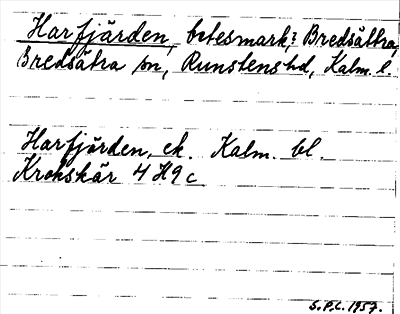 Harfjärden, betesmark? Bredsättra,
Bredsätra sn, Runstens hd, Kalm. l.
Harfjärden, ek. Kalm. bl.
Krokskär 4 H9c
S.P.L. 1957.